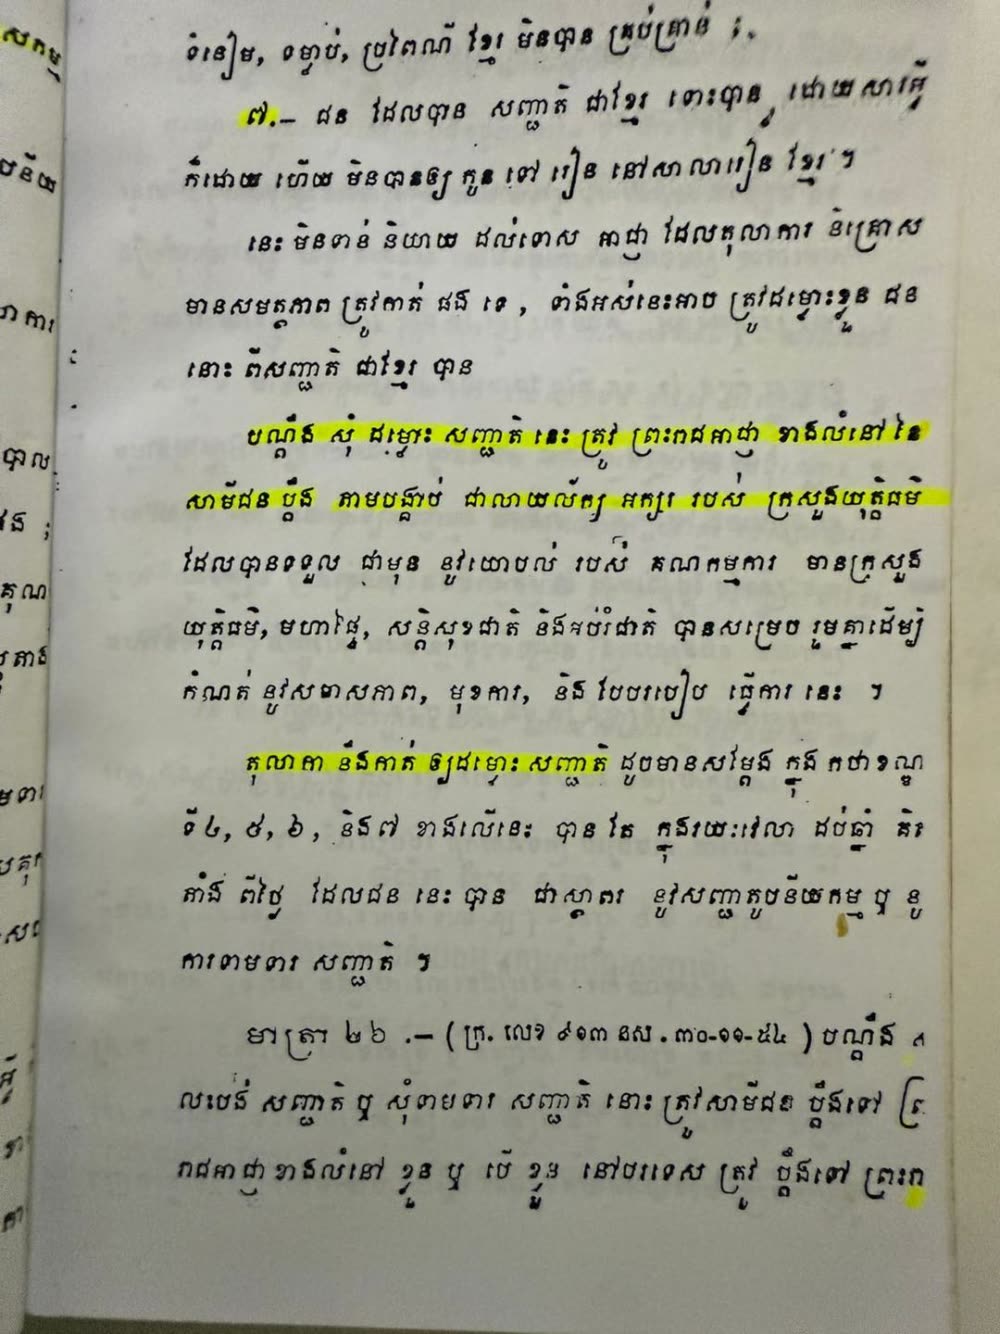 ទំនៀម, ទម្លាប់, ប្រពៃណី ខ្មែរ មិនបាន គ្រប់គ្រាន់ ;
៧.– ជន ដែលបាន សញ្ជាតិ ជាខ្មែរ ទោះបាន ដោយសារអ្វី
ក៏ដោយ ហើយ មិនបានឲ្យ កូន ទៅ រៀន នៅសាលារៀន ខ្មែរ ។
នេះ មិនទាន់ និយាយ ដល់ទោស អាជ្ញា ដែលតុលាការ និគ្រោស
មានសមត្ថភាព ត្រូវកាត់ ផង ទេ, ទាំងអស់នេះអាច ត្រូវដម្ចោះខ្លួន ជន
នោះ ពីសញ្ជាតិ ជាខ្មែរ បាន
បណ្ដឹង សុំ ដម្ចោះ សញ្ជាតិ នេះ ត្រូវ ព្រះរាជអាជ្ញា ខាងលំនៅ នៃ
សាមីជន ប្ដឹង តាមបង្គាប់ ជាលាយល័ក្ខ អក្សរ របស់ ក្រសួងយុត្តិធម៌
ដែលបានទទួល ជាមុន នូវយោបល់ របស់ គណកម្មការ មានក្រសួង
យុត្តិធម៌, មហាផ្ទៃ, សន្តិសុខជាតិ និងអប់រំជាតិ បានសម្រេច រួមគ្នាដើម្បី
កំណត់ នូវសមាសភាព, មុខការ, និង បែបរបៀប ធ្វើការ នេះ ។
តុលាកា នឹងកាត់ ឲ្យដម្ចោះ សញ្ជាតិ ដូចមានសម្ដែង ក្នុង កថាខណ្ឌ
ទី៤, ៥, ៦, និង៧ ខាងលើនេះ បាន តែ ក្នុងរយៈវេលា ដប់ឆ្នាំ គិត
តាំង ពីថ្ងៃ ដែលជន នេះ បាន ជាស្ថាពរ នូវសញ្ជាតូបនីយកម្ម ឬ នូ
ការទាមទារ សញ្ជាតិ ។
មាត្រា ២៦ .– ( ក្រ. លេខ ៩១៣ នស . ៣០-១១-៥៤ ) បណ្ដឹង
លះបង់ សញ្ជាតិ ឬ សុំទាមទារ សញ្ជាតិ នោះ ត្រូវសាមីជន ប្ដឹងទៅ
រាជអាជ្ញា ខាងលំនៅ ខ្លួន ឬ បើ ខ្លួន នៅបរទេស ត្រូវ ប្ដឹងទៅ ព្រះរា